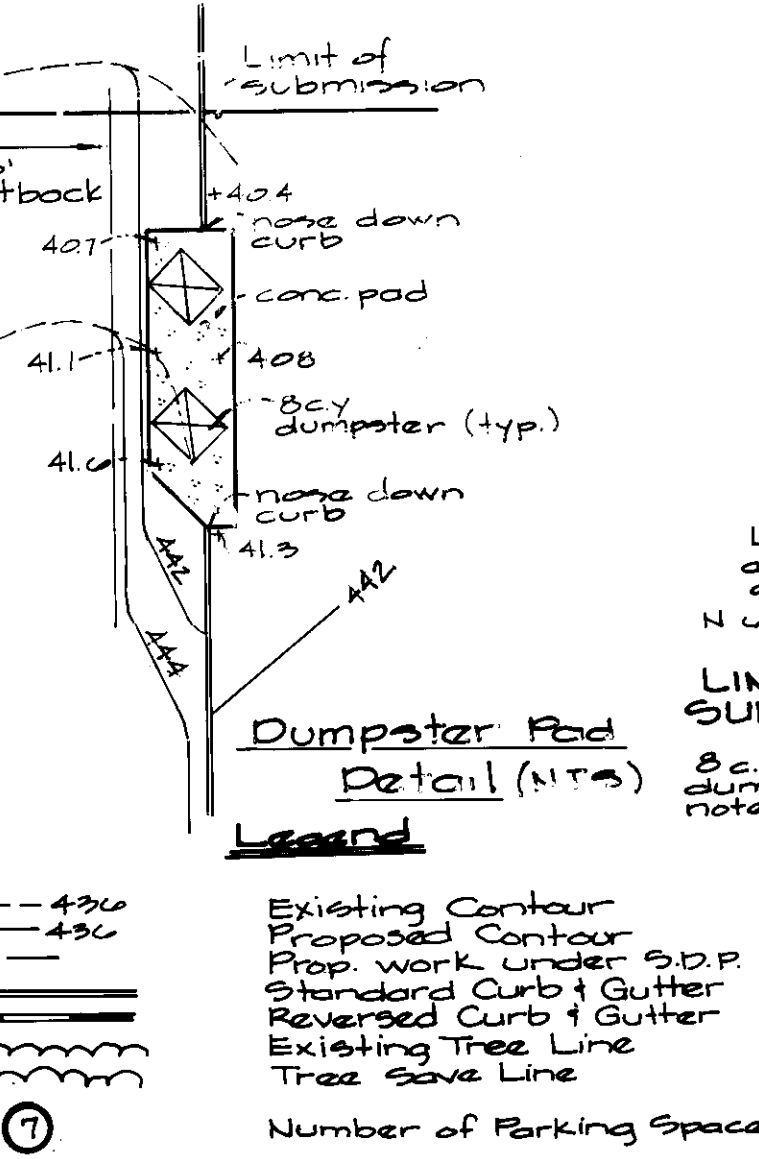 Limit of
submission
setback
+40.4
nose down
curb
40.7
conc. pad
41.1
+ 408
8c.y
dumpster (typ.)
41.6
nose down
curb
41.3
442
442
444
Dumpster Pad
Detail (NTS)
LIM
SUB
8 c.
dum
note
Legend
436 Existing Contour
436 Proposed Contour
Prop. work under S.D.P.
Standard Curb & Gutter
Reversed Curb & Gutter
Existing Tree Line
Tree Save Line
7 Number of Parking Space